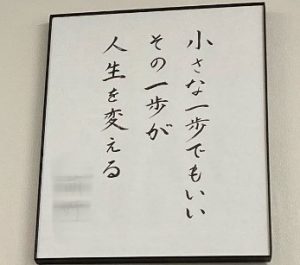 小さな一歩でもいい
その一歩が
人生を変える